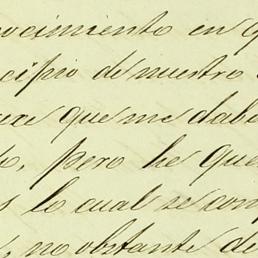 ocimiento en q
cipio de nuestro
que me dab
o, pero he que
s lo cual se com
, no obstante de